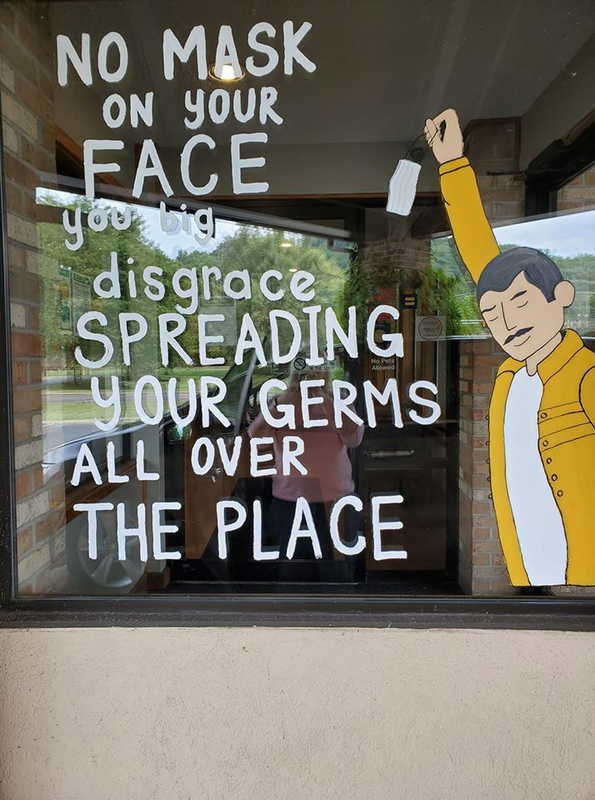 NO MASK
ON YOUR
FACE
you big
disgrace
SPREADING
YOUR GERMS
ALL OVER
THE PLACE
No Pets
Allowed